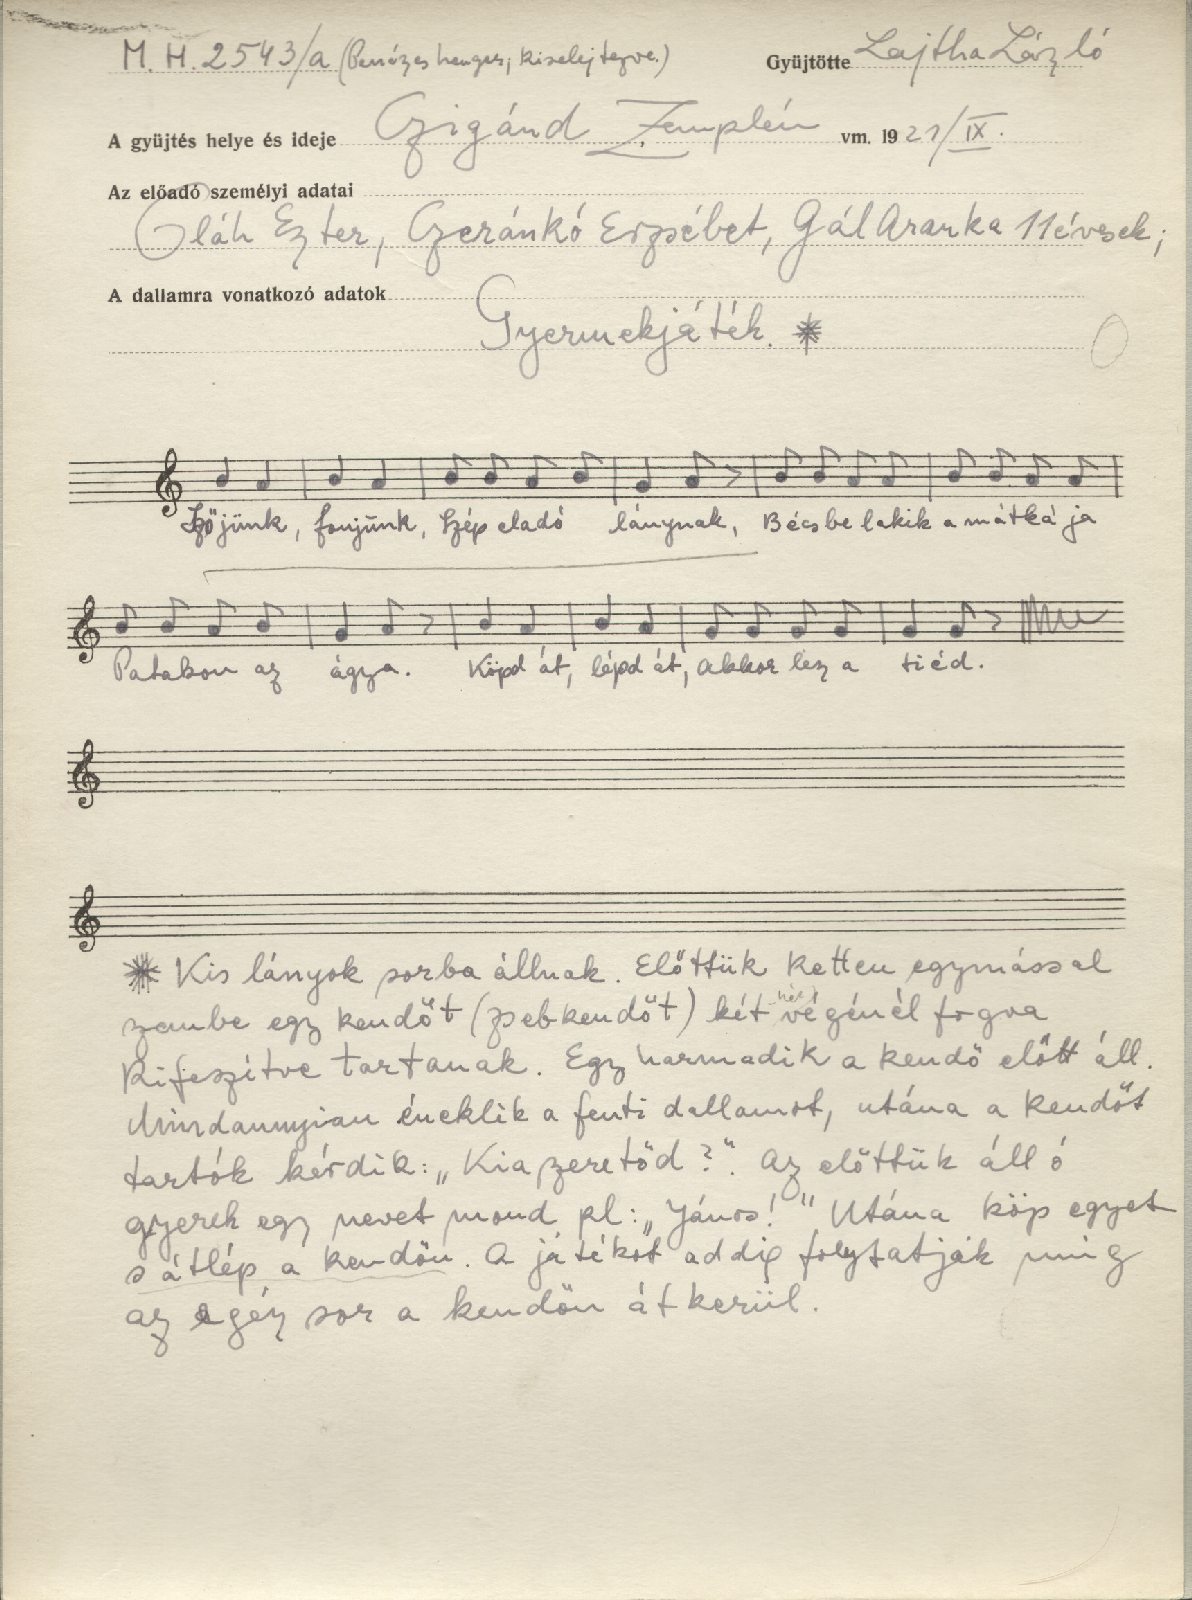 M. H. 2543/a (Penészes henger, kiselejtezve.) Gyüjtötte Lajtha László
A gyüjtés helye és ideje Czigánd, Zemplén vm. 1921/IX.
Az előadó személyi adatai
Oláh Eszter, Czeránkó Erzsébet, Gál Aranka 11 évesek;
A dallamra vonatkozó adatok
Gyermekjáték. *
Szőjünk, fonjunk, szép eladó lánynak, Bécsbe lakik a mátkája
Patakon az ágya. Köpd át, lépd át, akkor lesz a tiéd.
* Kis lányok sorba állnak. Előttük ketten egymással
szembe egy kendőt (zsebkendőt) két végénél fogva
kifeszítve tartanak. Egy harmadik a kendő előtt áll.
Mindannyian éneklik a fenti dallamot, utána a kendőt
tartók kérdik: „Ki a szeretőd?". Az előttük álló
gyerek egy nevet mond pl: „János!" Utána köp egyet
s átlép a kendőn. A játékot addig folytatják míg
az egész sor a kendőn átkerül.